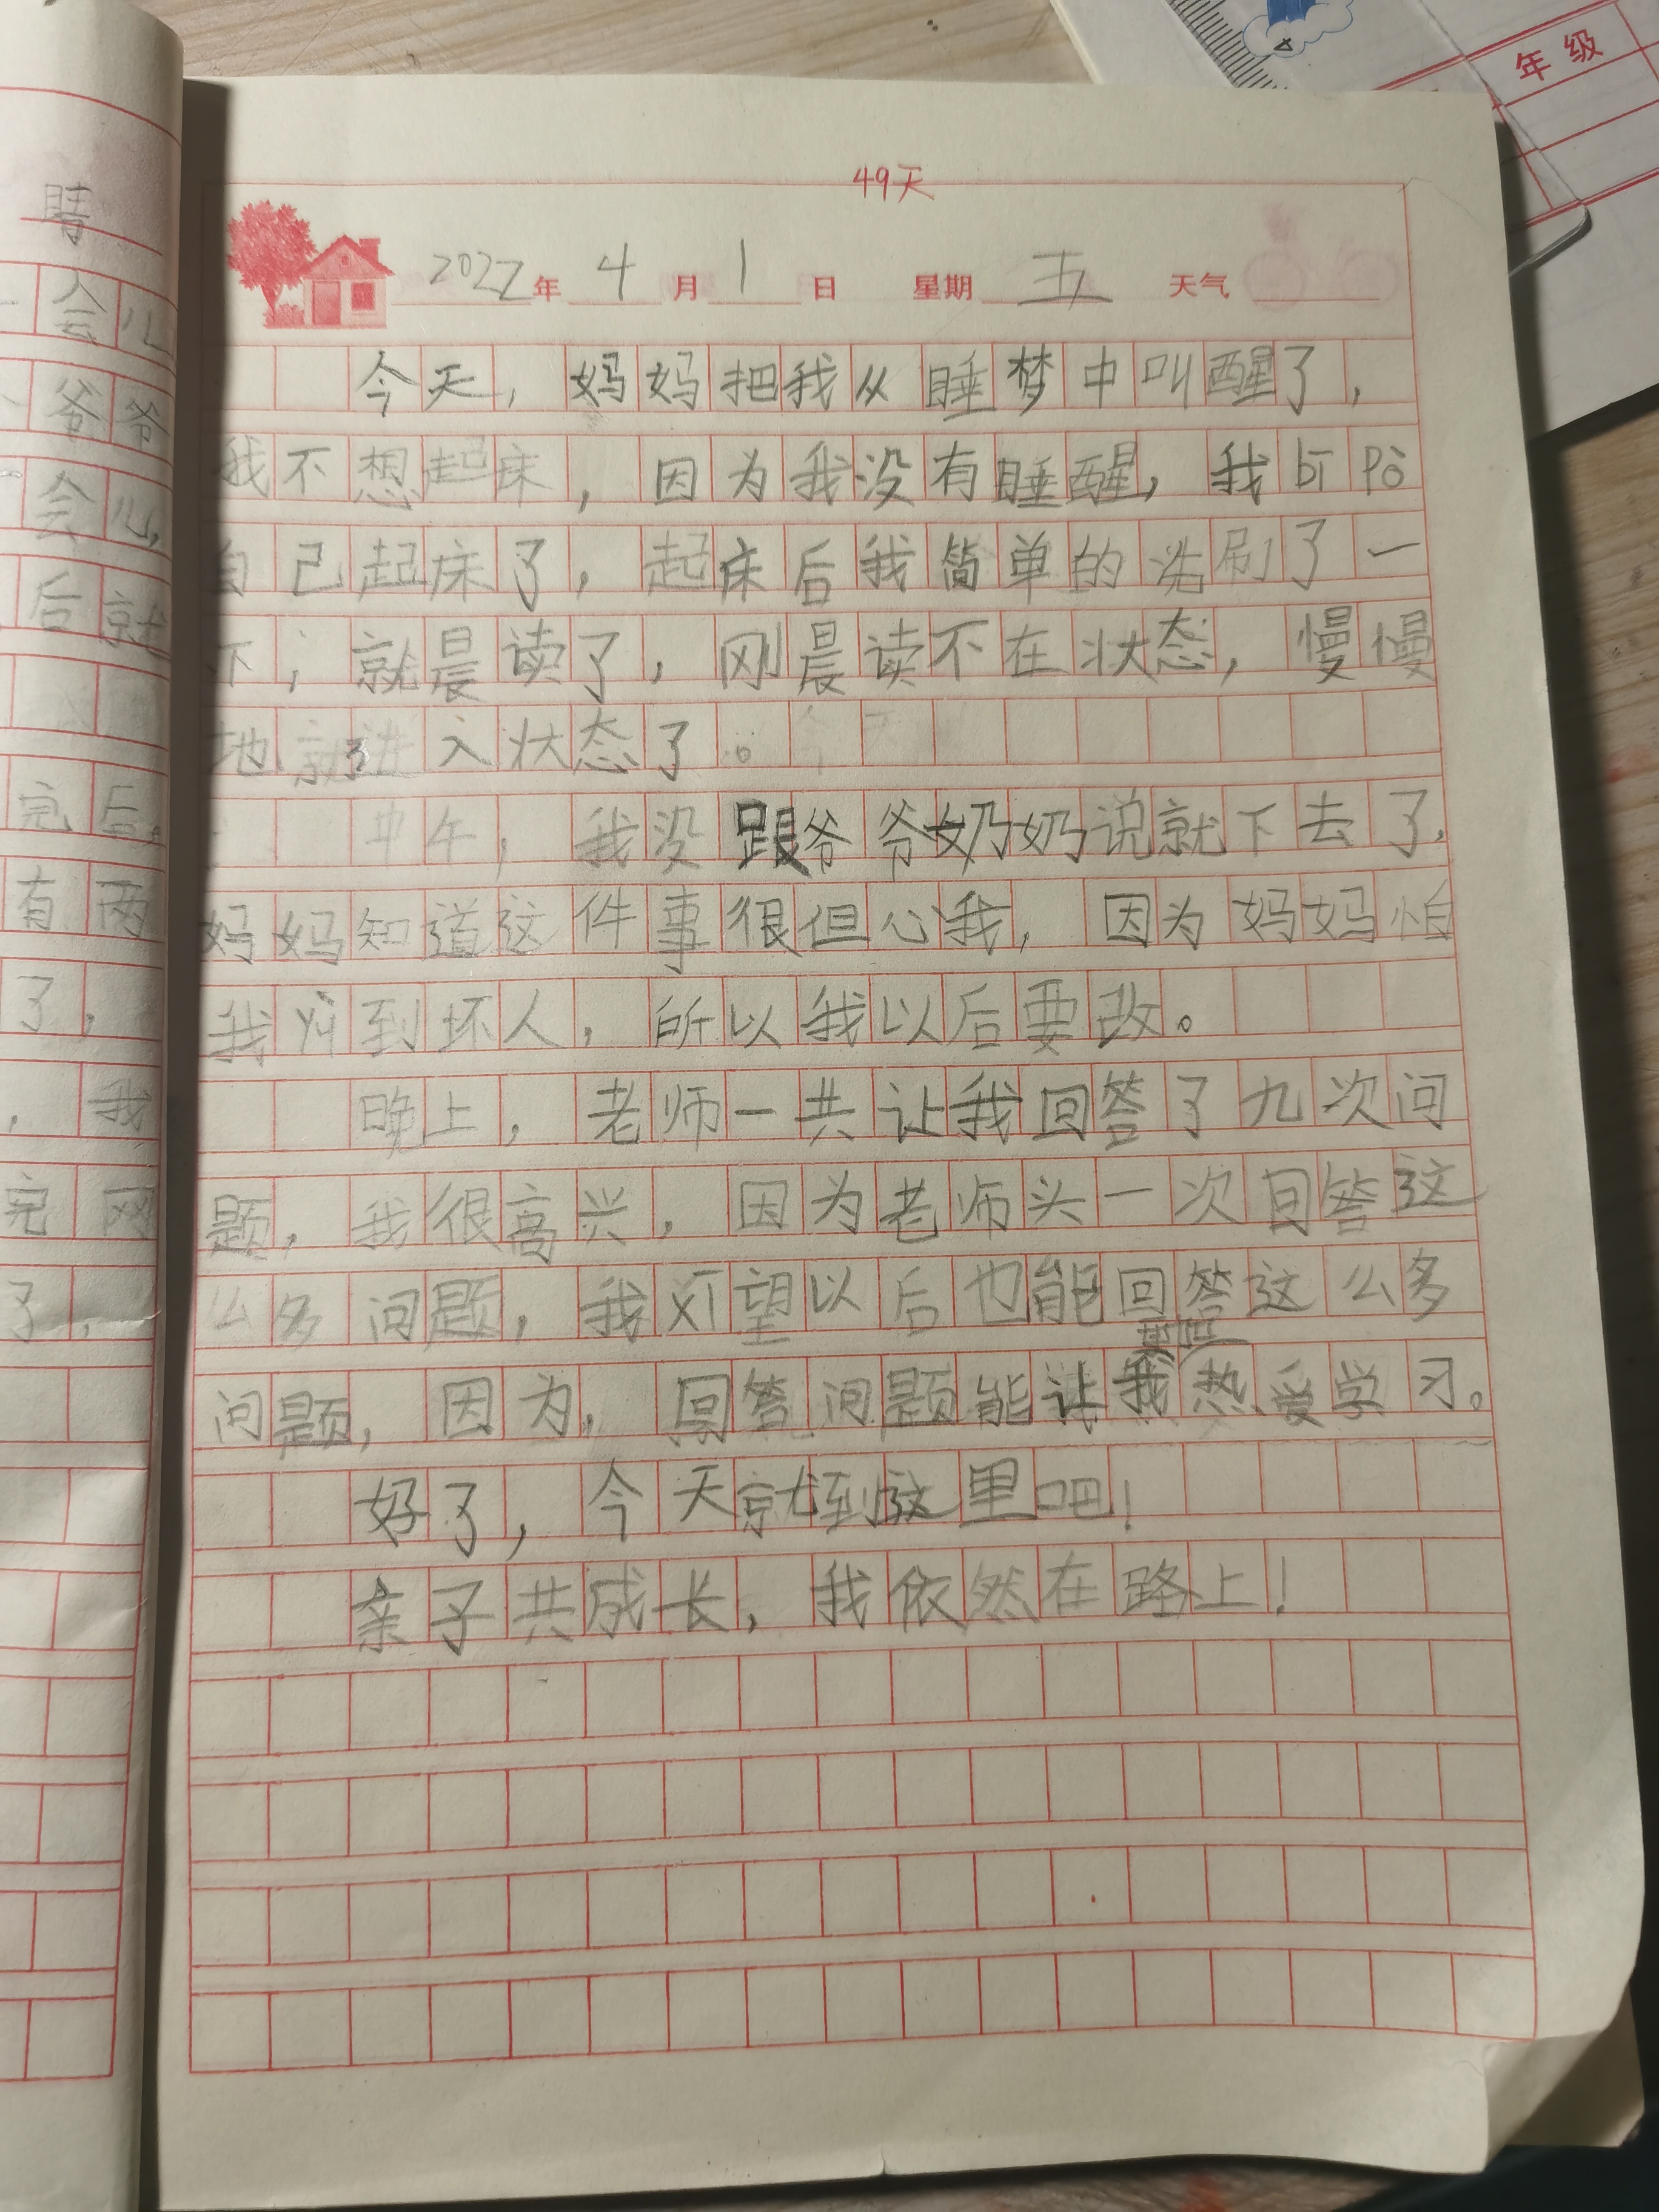 年级
49天
2022年4月1日 星期五 天气
今天，妈妈把我从睡梦中叫醒了，
我不想起床，因为我没有睡醒，我bī pò
自己起床了，起床后我简单的洗刷了一
下，就晨读了，刚晨读不在状态，慢慢
地就进入状态了。
中午，我没跟爷爷奶奶说就下去了，
妈妈知道这件事很但心我，因为妈妈怕
我yù到坏人，所以我以后要改。
晚上，老师一共让我回答了九次问
题，我很高兴，因为老师头一次回答这
么多问题，我xī望以后也能回答这么多
问题，因为，回答问题能让我更热爱学习。
好了，今天就到这里吧！
亲子共成长，我依然在路上！
晴
一会儿
爷爷
会儿，
后就
完后
有两
了，
，我
完网
了，